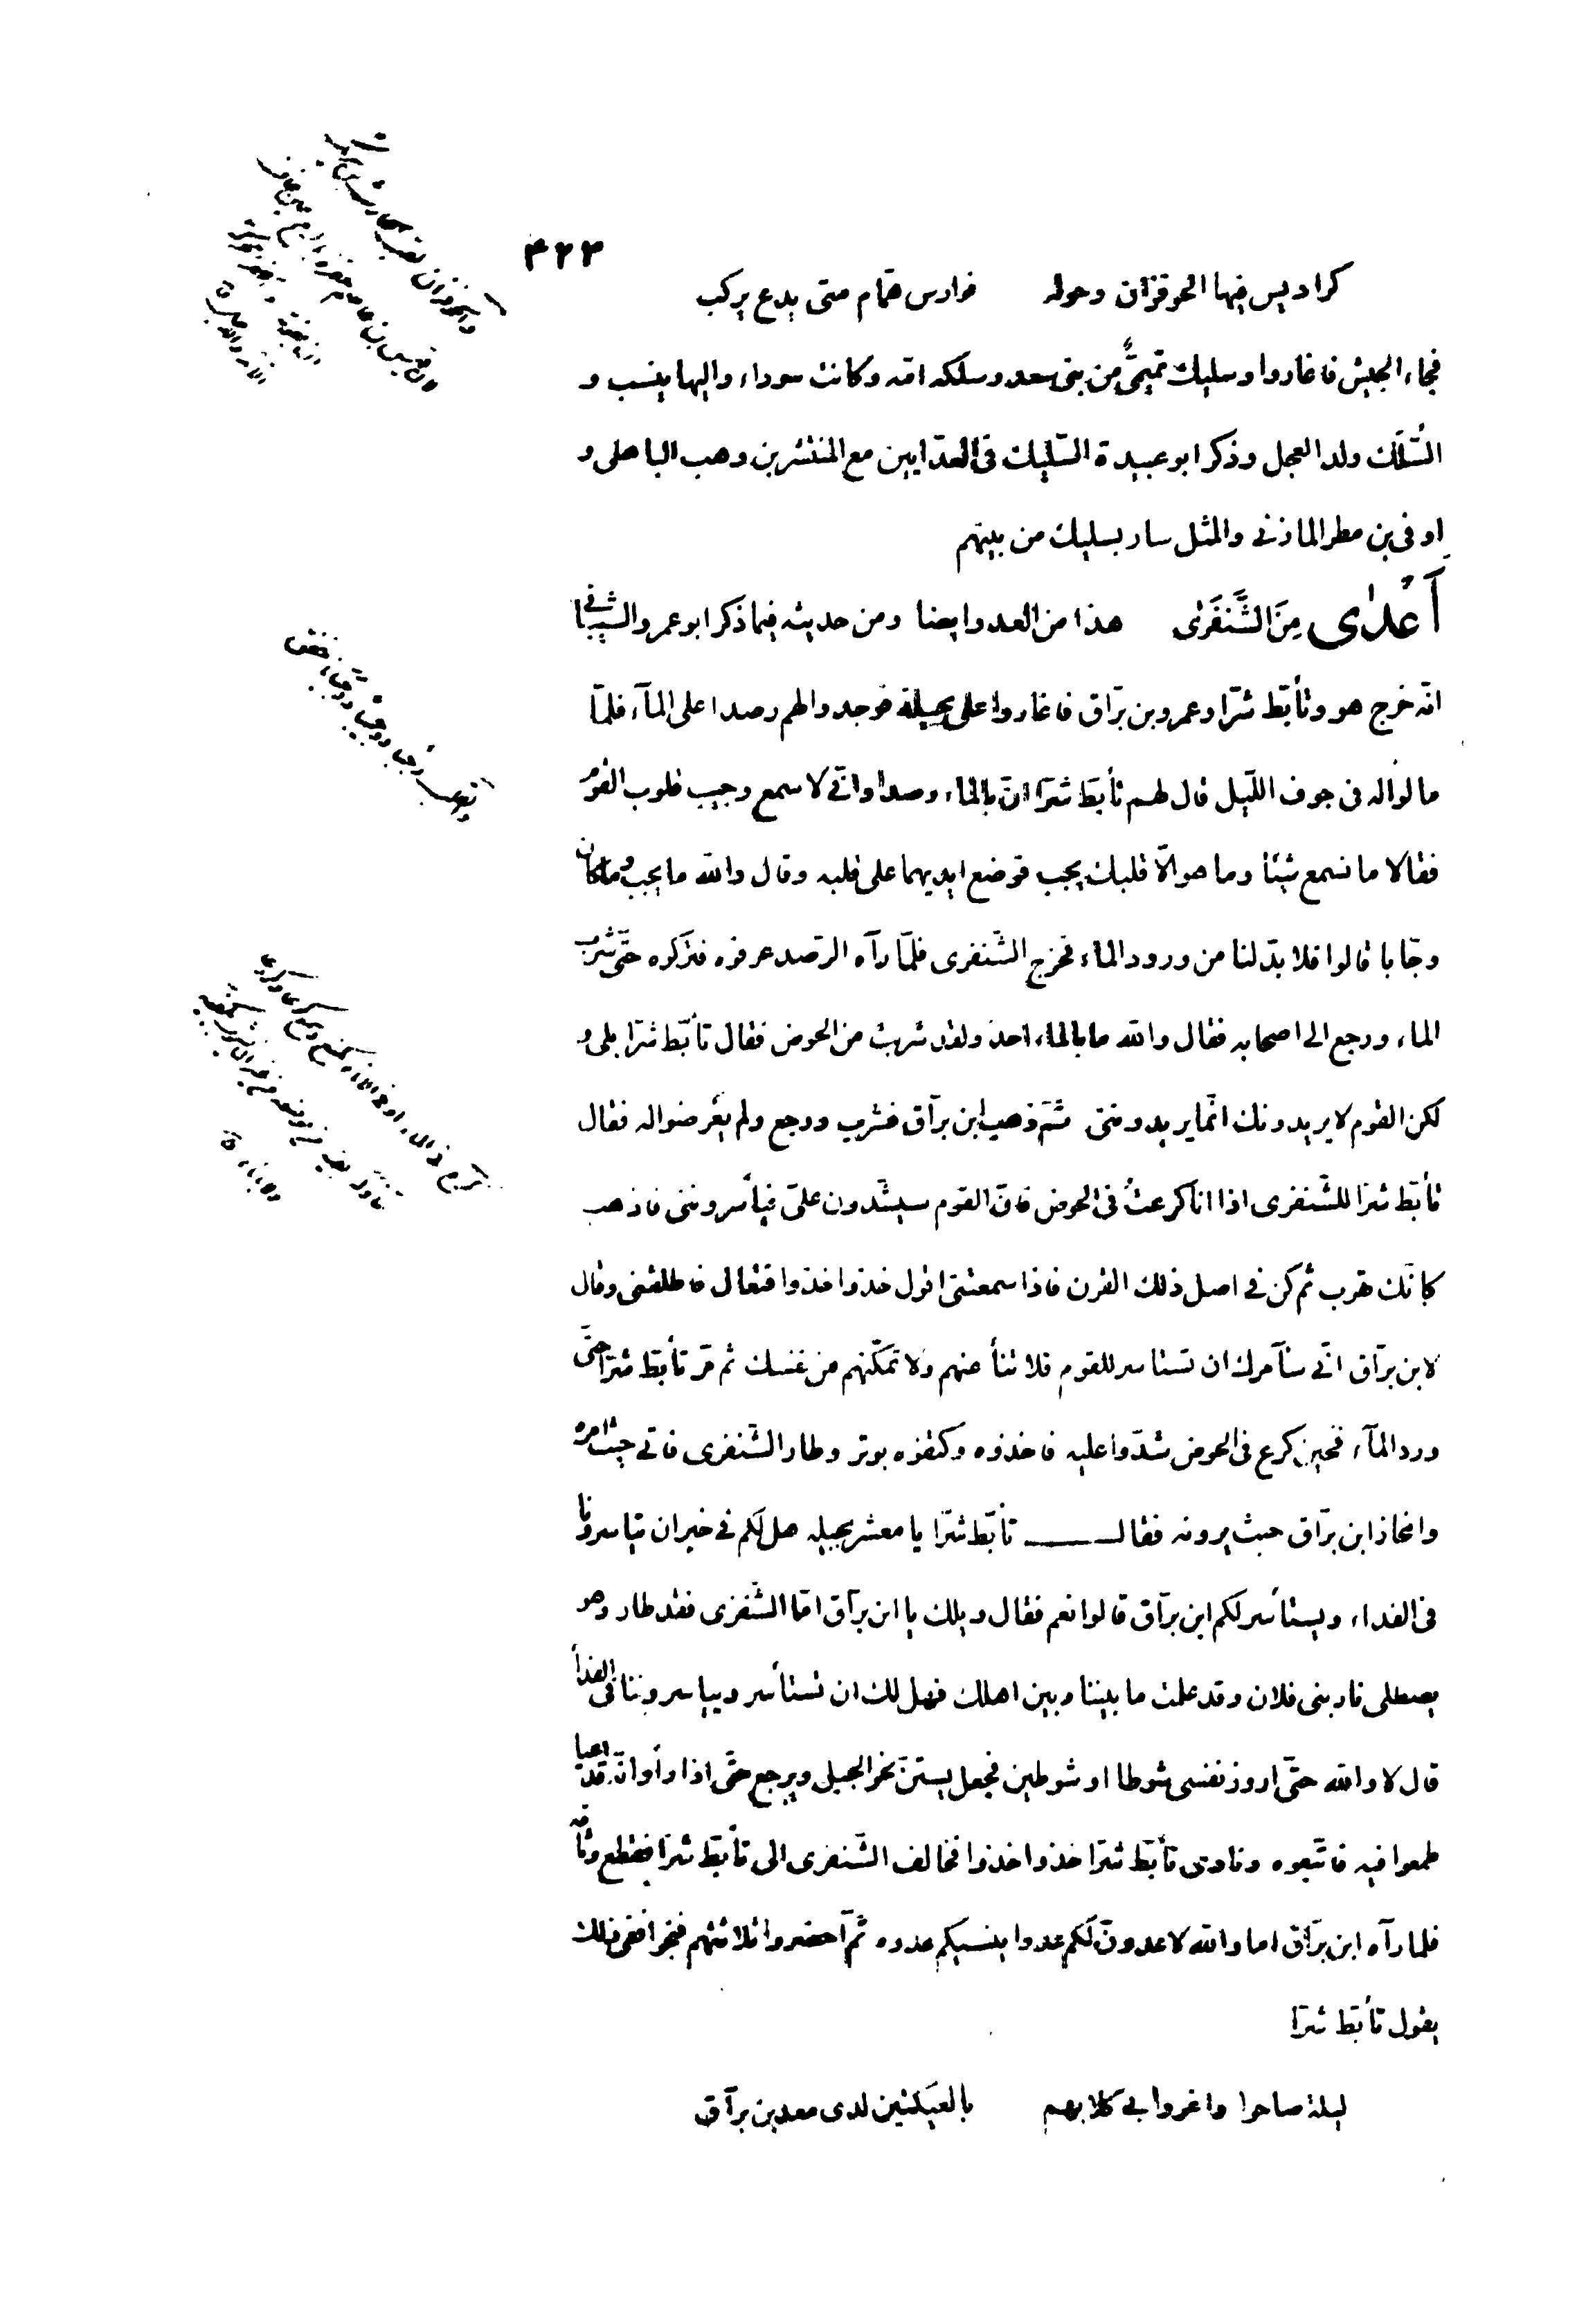 ۴۲۲
كراديس فيها الحوفزان وحوله فوارس همّام متى يدع يركب
فجاء الجيش فاغاروا وسليك تميمىٌّ من بنى سعد وسلكه امّه وكانت سوداء واليها ينسب و
السُّلَك ولد الحجل وذكر ابو عبيدة السّليك فى العدّايين مع المنتشر بن وهب الباهلى و
اوفى بن مطر المازنى والمثل سار بسليك من بينهم
أَعْدٰى مِنَ الشَّنفَرٰى هذا من العدو ايضا ومن حديثه فيما ذكر ابو عمرو الشيبانى
انّه خرج هو وتأبّط شرّا وعمرو بن برّاق فاغاروا على بجيلة فوجدوا لهم رصدا على المآء فلمّا
مالوا له فى جوف اللّيل قال لهم تأبّط شرّا انّ بالماء رصدا وانّى لاسمع وجيب قلوب القوم
فقالا ما نسمع شيئا وما هو الّا قلبك يجب فوضع ايديهما على قلبه وقال والله ما يجب وما كان
وجّابا قالوا فلا بدّ لنا من ورود الماء فخرج الشّنفرى فلمّا رآه الرّصد عرفوه فتركوه حتّى شرب
الماء ورجع الى اصحابه فقال والله ما بالماء احد ولقد شربت من الحوض فقال تأبّط شرّا بلى و
لكن القوم لا يريدونك انّما يريدوننى ثمّ ذهب ابن برّاق فشرب ورجع ولم يعرضوا له فقال
تأبّط شرّا للشّنفرى اذا انا كرعتُ فى الحوض فانّ القوم سيشدّون علىّ فيأسروننى فاذهب
كانّك تهرب ثم كن فى اصل ذلك القرن فاذا سمعتنى اقول خذوا خذوا فتعال فاطلقنى وقال
لابن برّاق انّى سآمرك ان تستاسر للقوم فلا تنأ عنهم ولا تمكّنهم من نفسك ثم مرّ تأبّط شرّا حتّى
ورد المآء فحين كرع فى الحوض شدّوا عليه فاخذوه وكتفوه بوتر وطار الشّنفرى فاتى حيث امره
وانحاز ابن برّاق حيث يرونه فقال تأبّط شرّا يا معشر بجيله هل لكم فى خير ان تياسرونا
فى الفداء ويستأسر لكم ابن برّاق قالوا نعم فقال ويلك يا ابن برّاق امّا الشّنفرى فقد طار وهو
يصطلى نار بنى فلان وقد علمت ما بيننا وبين اهلك فهل لك ان تستأسر وييا سروننا فى الفدأ
قال لا والله حتّى اروز نفسى شوطا او شوطين فجعل يستنّ نحو الجبل ويرجع حتّى اذا رأوا انّه قد اعيا
طمعوا فيه فاتّبعوه ونادى تأبّط شرّا خذوا خذوا فخالف الشّنفرى الى تأبّط شرّا فقطع وثاقه
فلما رآه ابن برّاق اما والله لاعدونّ لكم عدوا ينسيكم عدوه ثمّ احضروا ثلاثتهم فنجوا ففى ذلك
يقول تأبّط شرّا
ليلة صاحوا واغروا بى كلابهم بالعيكتين لدى معدى بن برّاق